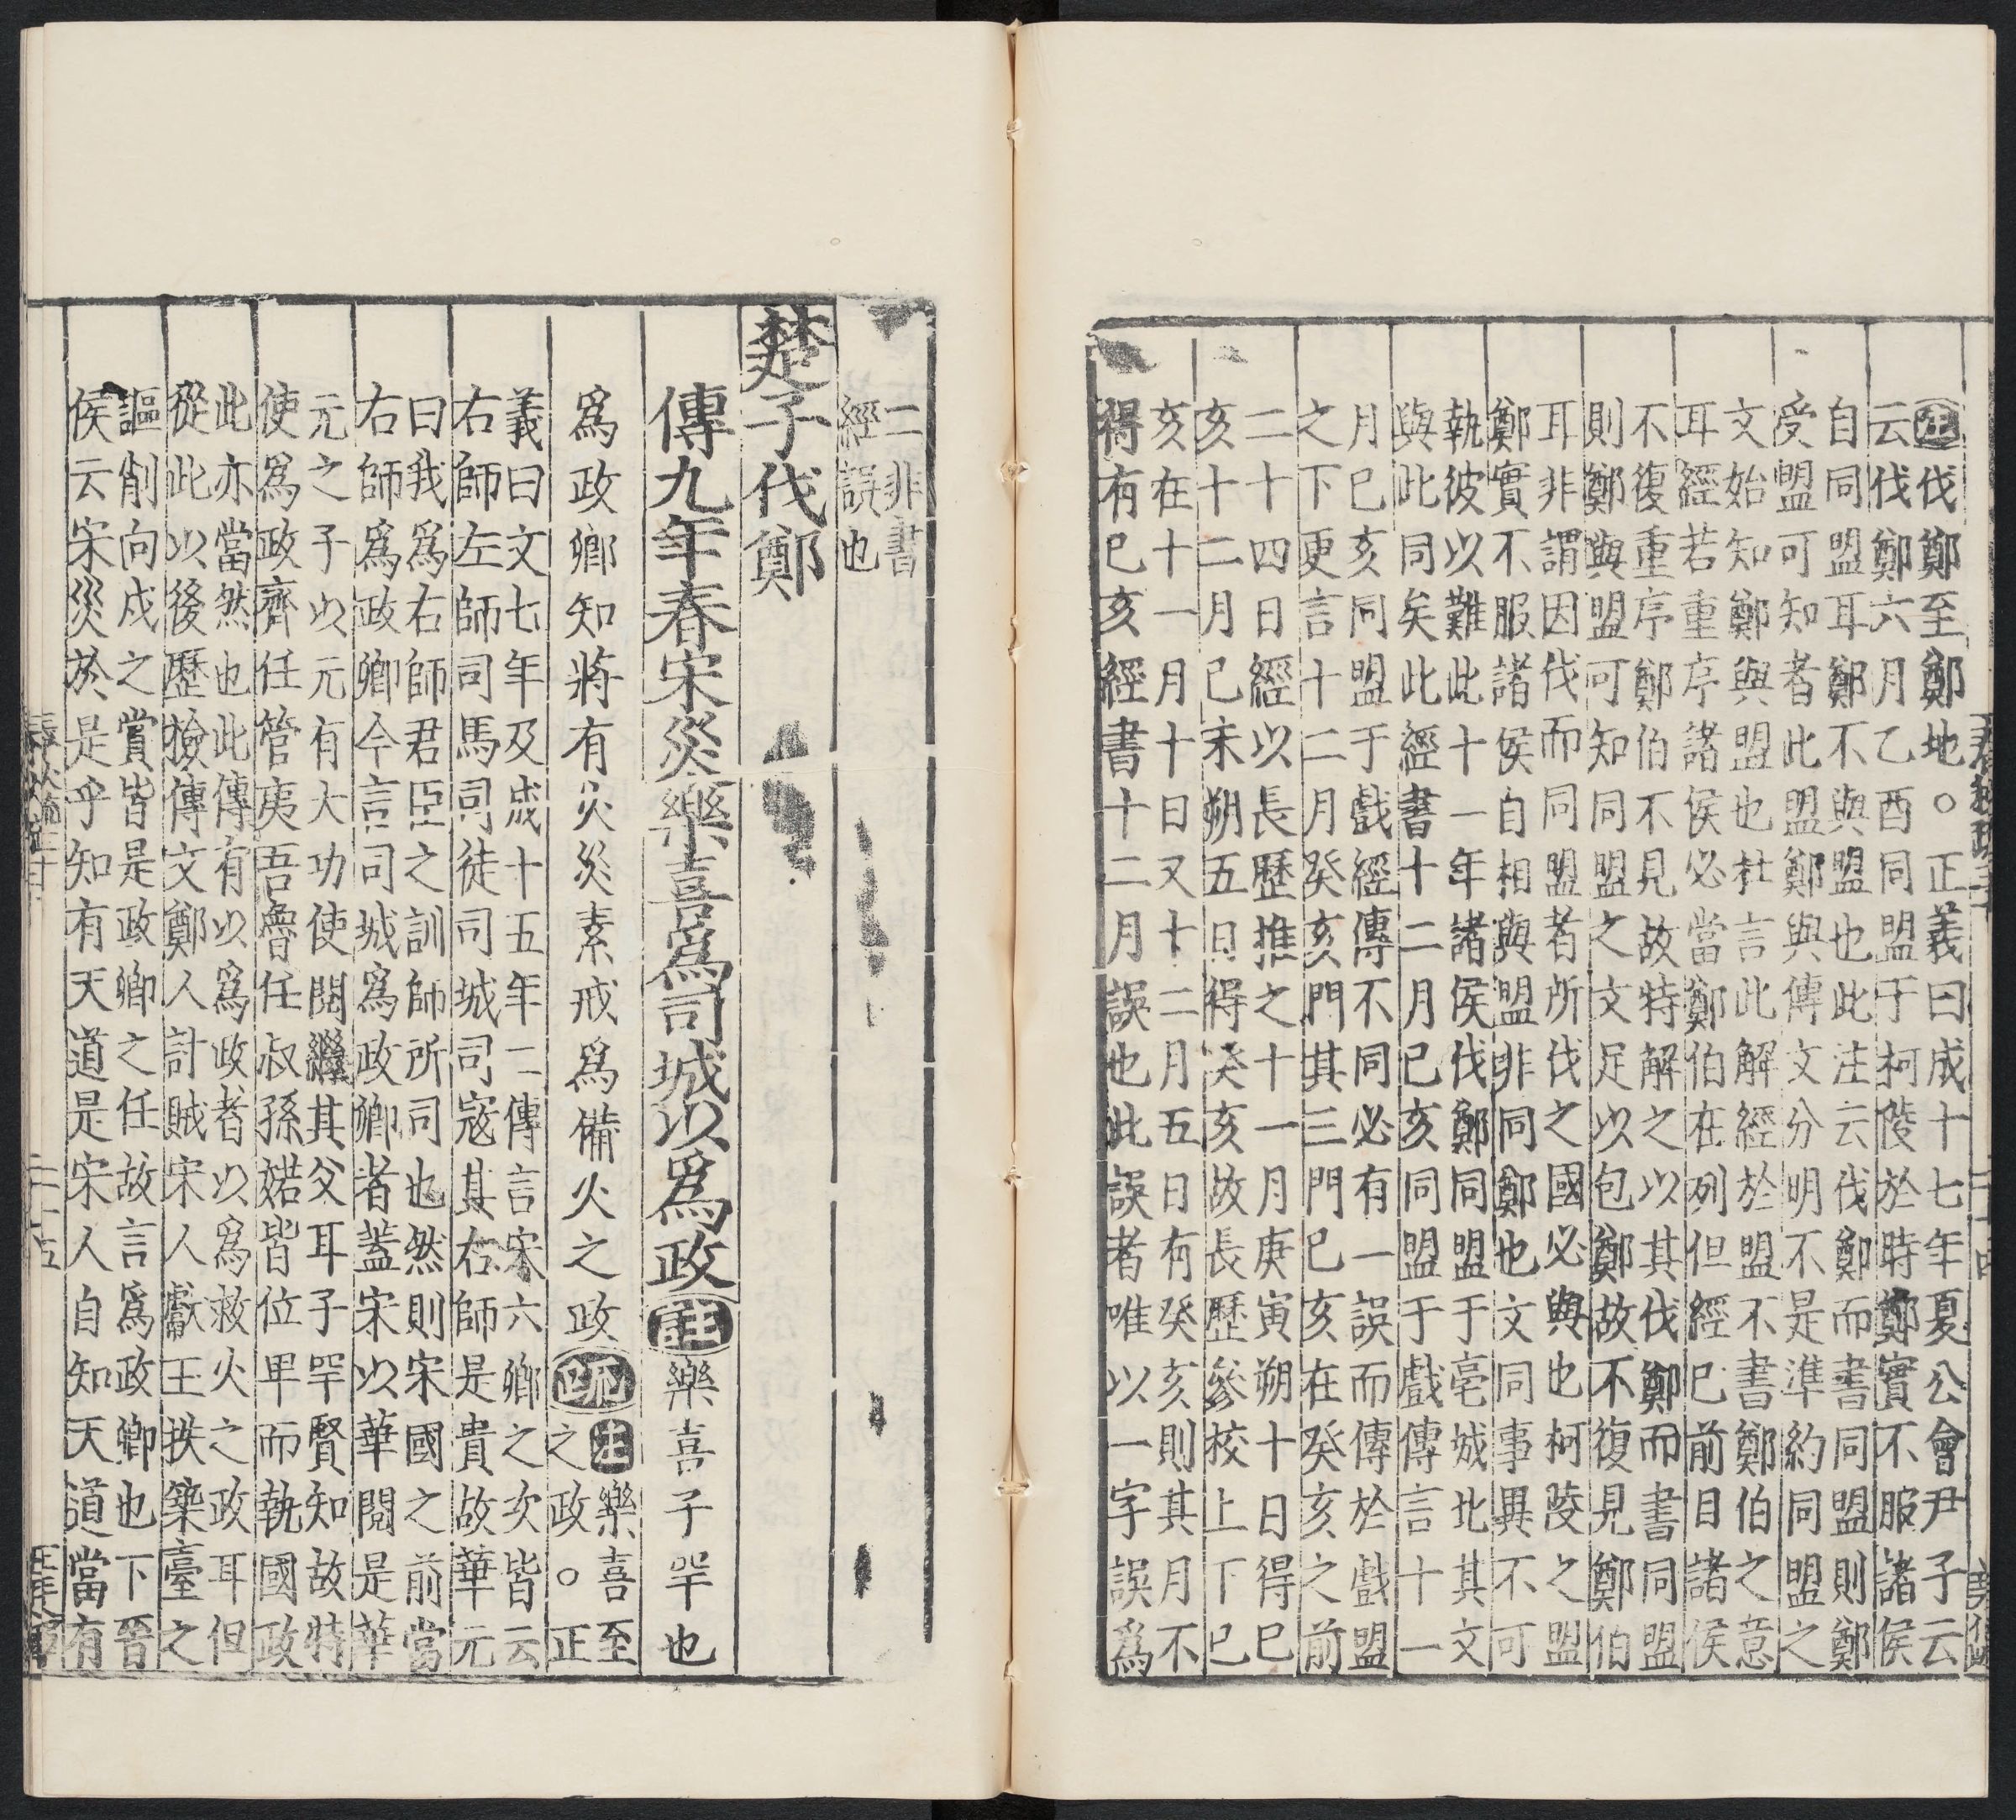 注伐鄭至鄭地。正義曰成十七年夏公會尹子云
云伐鄭六月乙酉同盟于柯陵於時鄭實不服諸侯
自同盟耳鄭不與盟也此注云伐鄭而書同盟則鄭
受盟可知者此盟鄭與傳文分明不是準約同盟之
文始知鄭與盟也杜言此解經於盟不書鄭伯之意
耳經若重序諸侯必當鄭伯在列但經巳前目諸侯
不復重序鄭伯不見故特解之以其伐鄭而書同盟
則鄭與盟可知同盟之文足以包鄭故不復見鄭伯
耳非謂因伐而同盟者所伐之國必與也柯陵之盟
鄭實不服諸侯自相與盟非同鄭也文同事異不可
執彼以難此十一年諸侯伐鄭同盟于亳城北其文
與此同矣此經書十二月巳亥同盟于戲傳言十一
月巳亥同盟于戲經傳不同必有一誤而傳於戲盟
之下更言十二月癸亥門其三門巳亥在癸亥之前
二十四日經以長歷推之十一月庚寅朔十日得巳
亥十二月巳未朔五日得癸亥故長歷參校上下巳
亥在十一月十日又十二月五日有癸亥則其月不
得有巳亥經書十二月誤也此誤者唯以一字誤爲
二非書
經誤也
楚子伐鄭
傳九年春宋災樂喜爲司城以爲政注樂喜子罕也
爲政卿知將有火災素戒爲備火之政疏注樂喜至
之政。正
義曰文七年及成十五年二傳言宋六卿之次皆云
右師左師司馬司徒司城司寇其右師是貴故華元
曰我爲右師君臣之訓師所司也然則宋國之前當
右師爲政卿今言司城爲政卿者蓋宋以華閱是華
元之子以元有大功使閱繼其父耳子罕賢知故特
使爲政齊任管夷吾魯任叔孫婼皆位卑而執國政
此亦當然也此傳有以爲政者以爲救火之政耳但
從此以後歷撿傳文鄭人討賊宋人獻玉扶築臺之
謳削向戌之賞皆是政卿之任故言爲政卿也下晉
侯云宋災於是乎知有天道是宋人自知天道當有